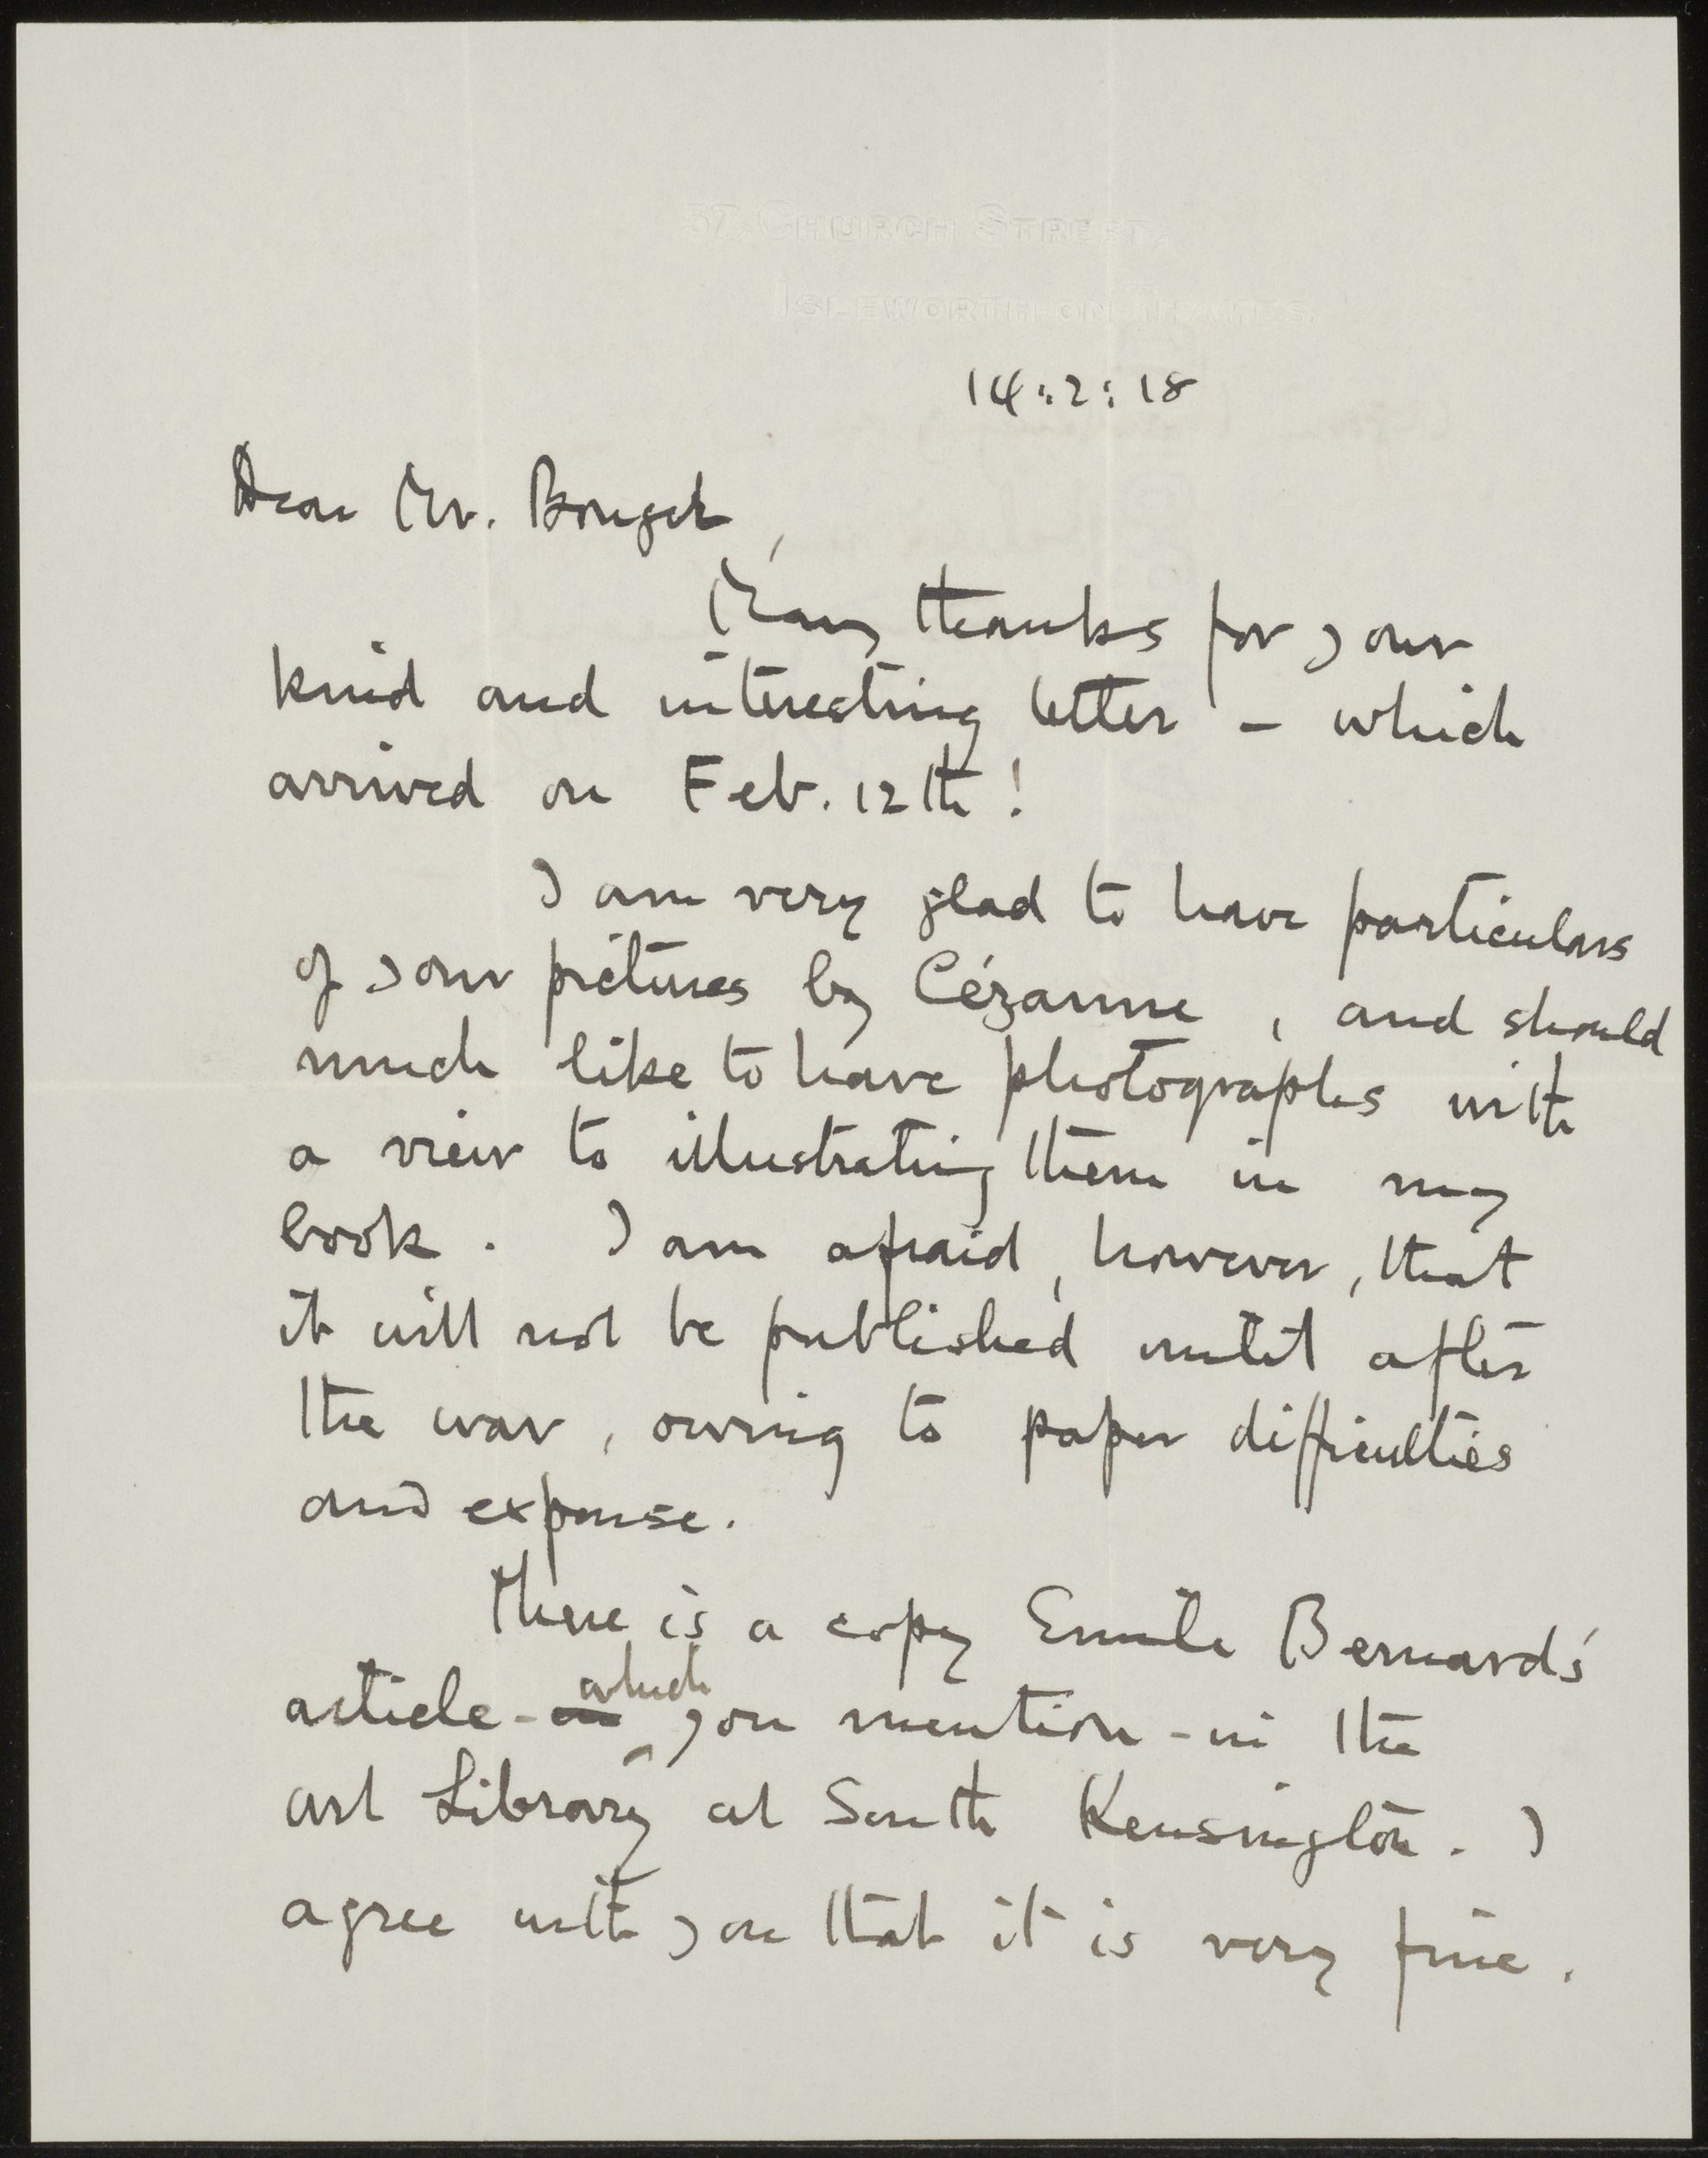 57, Church Street,
Isleworth-on-Thames.
14:2:18
Dear Mr. Bonger,
Many thanks for your
kind and interesting letter – which
arrived on Feb. 12th!
I am very glad to have particulars
of your pictures by Cézanne, and should
much like to have photographs with
a view to illustrating them in my
book. I am afraid, however, that
it will not be published until after
the war, owing to paper difficulties
and expense.
There is a copy Emile Bernard's
which
article - as you mention - in the
art Library at South Kensington. I
agree with you that it is very fine.